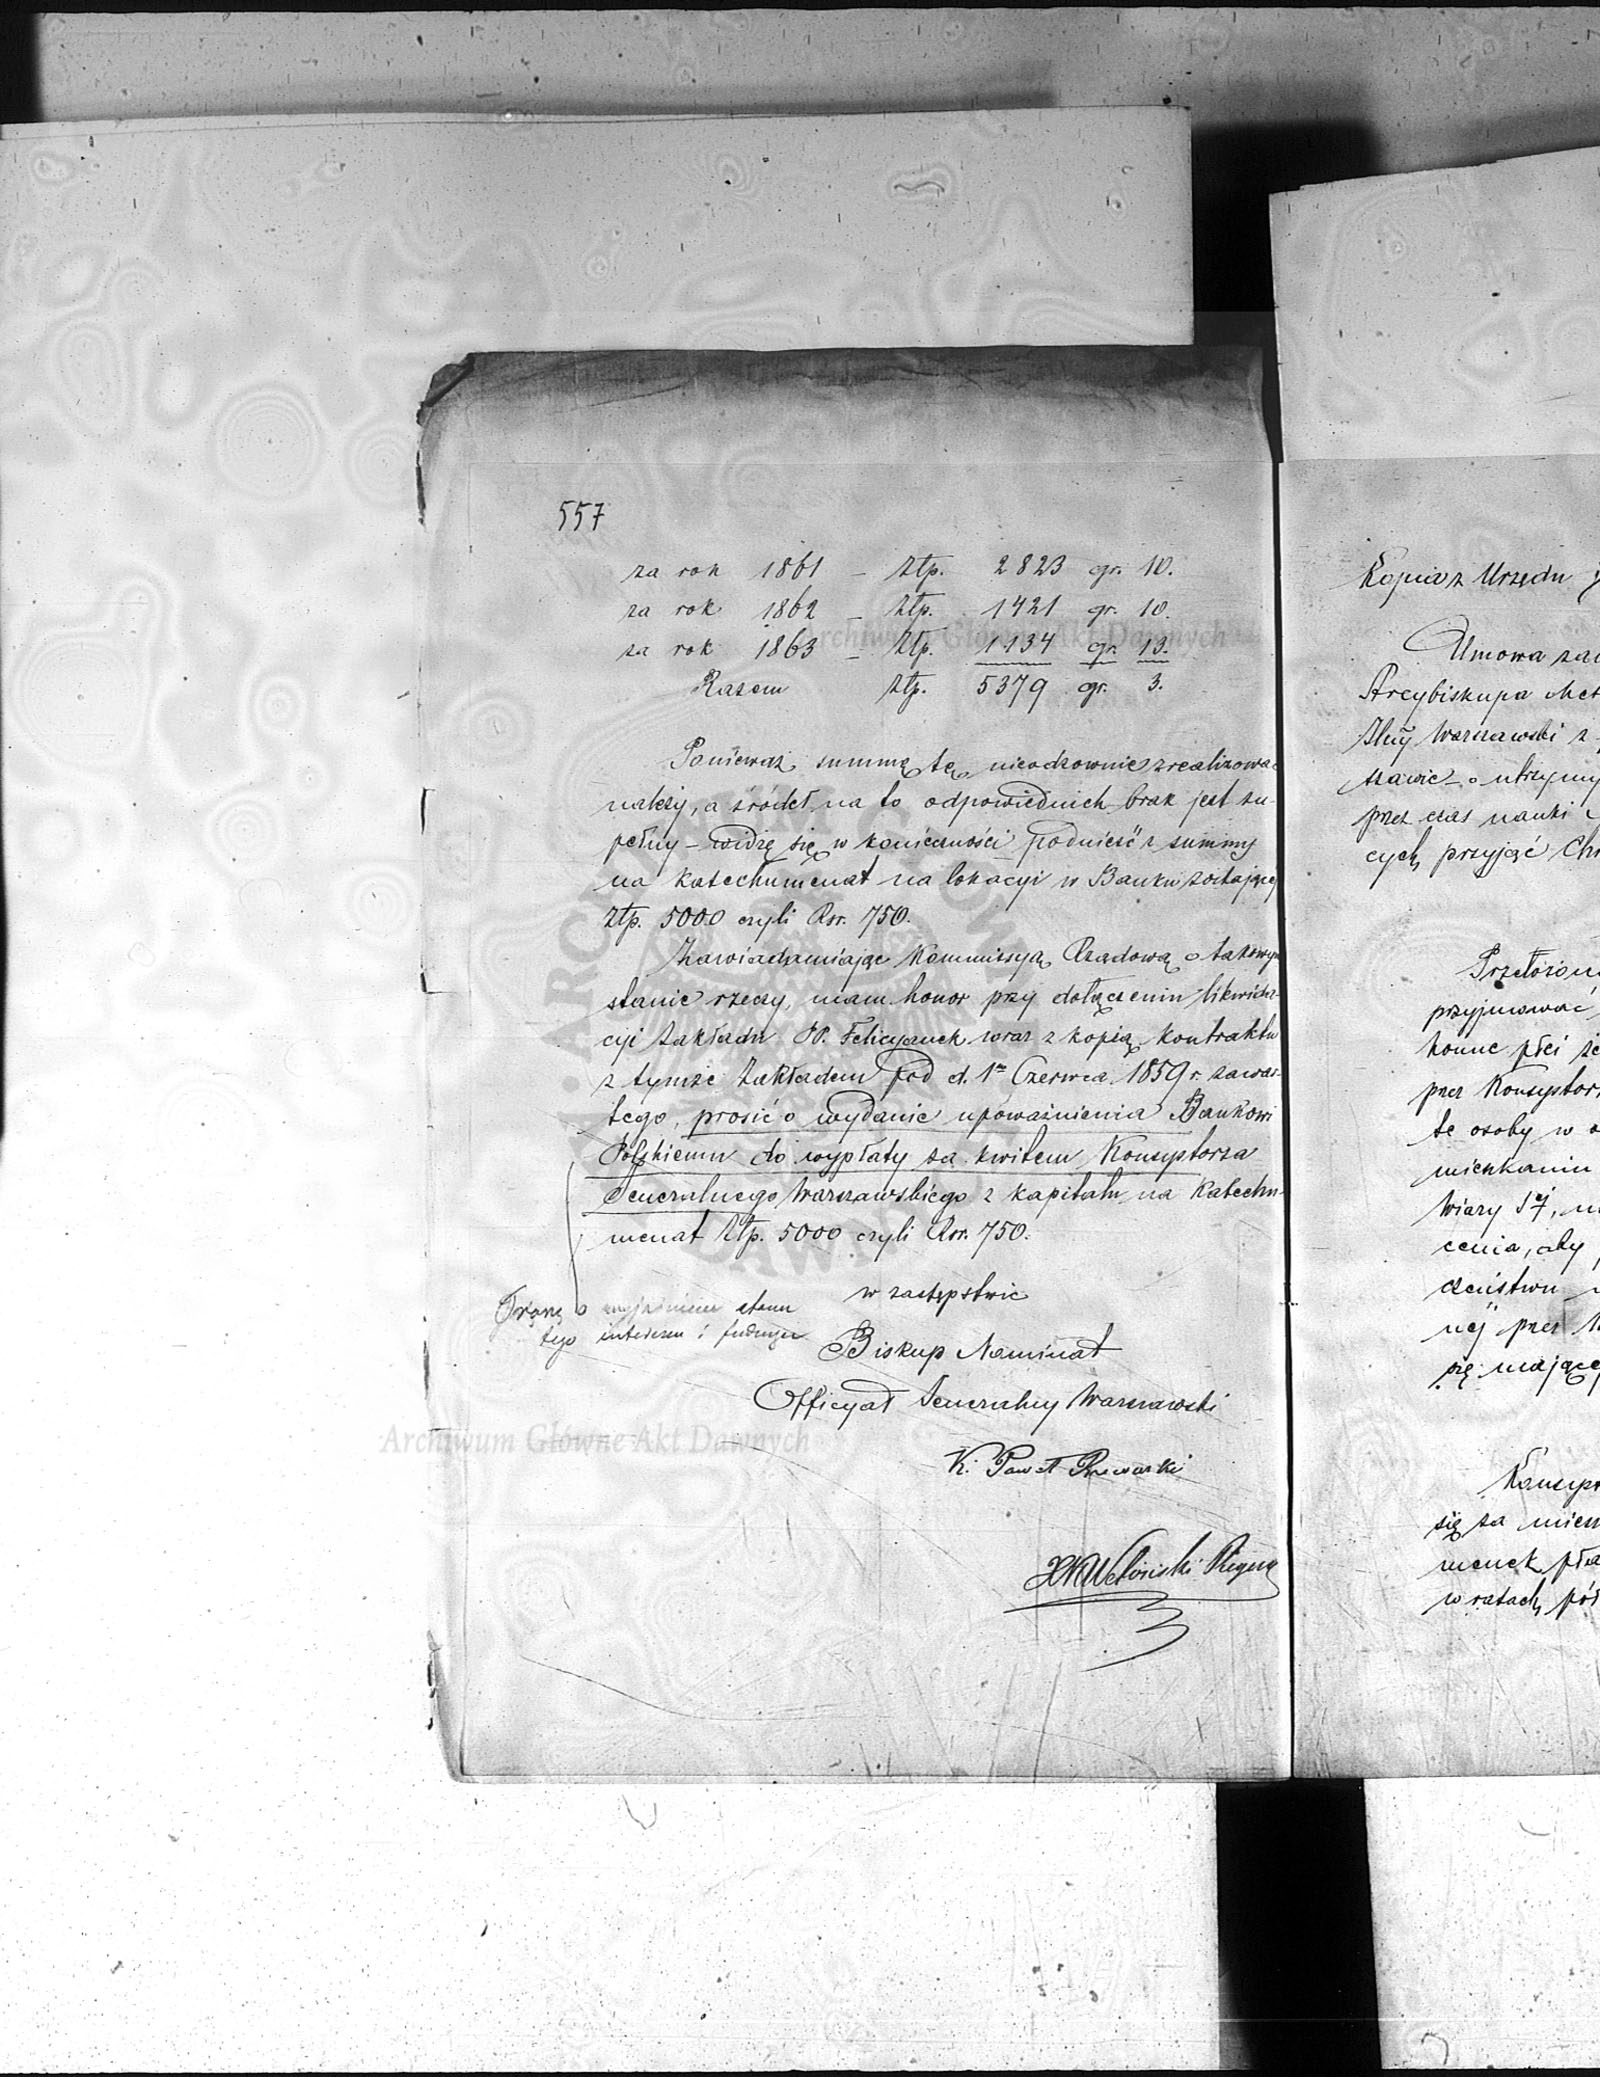 557
za rok 1861 – Złp. 2823 gr. 10.
za rok 1862 – Złp. 1421 gr. 10.
za rok 1863 – Złp. 1134 gr. 13.
Razem Złp. 5379 gr. 3.
Ponieważ summę tę nieodzownie zrealizować
należy, a źródeł na to odpowiednich brak jest zu-
pełny – widzę się w konieczności podnieść z summy
na katechumenat na lokacyi w Banku zostającej
złp. 5000 czyli Rsr. 750.
Zawiadamiając Kommissyą Rządową o takowym
stanie rzeczy, mam honor przy dołączeniu likwida-
cyi Zakładu PP. Felicyanek wraz z kopią kontraktu
z tymże Zakładem pod d. 1m Czerwca 1859 r. zawar-
tego, prosić o wydanie upoważnienia Bankowi
Polskiemu do wypłaty za kwitem Konsystorza
Jeneralnego Warszawskiego z kapitału na Katechu-
menat Złp. 5000 czyli Rsr. 750.
w zastępstwie
Proszę o wyjaśnienie stanu
tego interesu i
Biskup Nominat
Officyał Jeneralny Warszawski
X. Paweł Rzewuski
Archiwum Główne Akt Dawnych
Archiwum Główne Akt Dawnych
Kopia z Urzędu
Umowa za
Arcybiskupa Met
Jlny Warszawski z
szawie – o utrzymy
przez czas nauki
cych przyjąć Ch
Przełożon
przyjmować
komne płci że
przez Konsystor
te osoby w o
mieszkaniu
Wiary Sj, n
cenia, aby
czeństwu
nej przez
się mające
Konsyst
się za mies
menek pła
w ratach pół